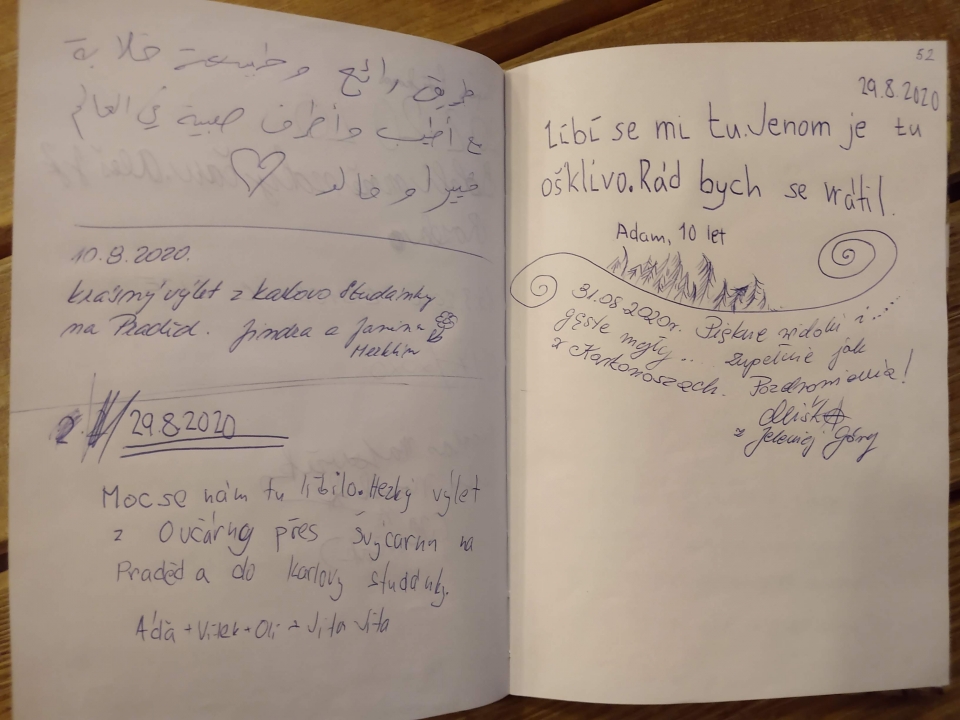 طريق رائع وطبيعة خلابة
مع أطيب وأظرف صبية في العالم
ميرا و خالد
10.8.2020.
krásný výlet z Karlovo Studánky
na Praděd. Jindra a Janina
29.8.2020
Moc se nám tu líbilo. Hezký výlet
z Ovčárny přes Švýcarnu na
Praděd a do Karlovy studánky.
Áďa + Vítek + Oli + Jíťa Víťa
52
29.8.2020
Líbí se mi tu. Jenom je tu
ošklivo. Rád bych se vrátil.
Adam, 10 let
31.08.2020r. Piękne widoki i...
gęste mgły... zupełnie jak
w Karkonoszach. Pozdrowienia!
z Jeleniej Góry